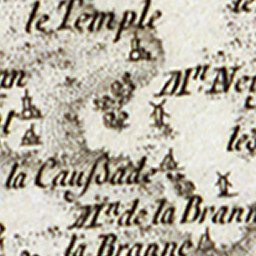 le Temple
le
Mn. Ne
la Caußade
Mn. de la Brann
la Branne